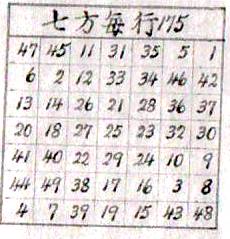 七方每行175
47 45 11 31 35 5 1
6 2 12 33 34 46 42
13 14 26 21 28 36 37
20 18 27 25 23 32 30
41 40 22 29 24 10 9
44 49 38 17 16 3 8
4 7 39 19 15 43 48